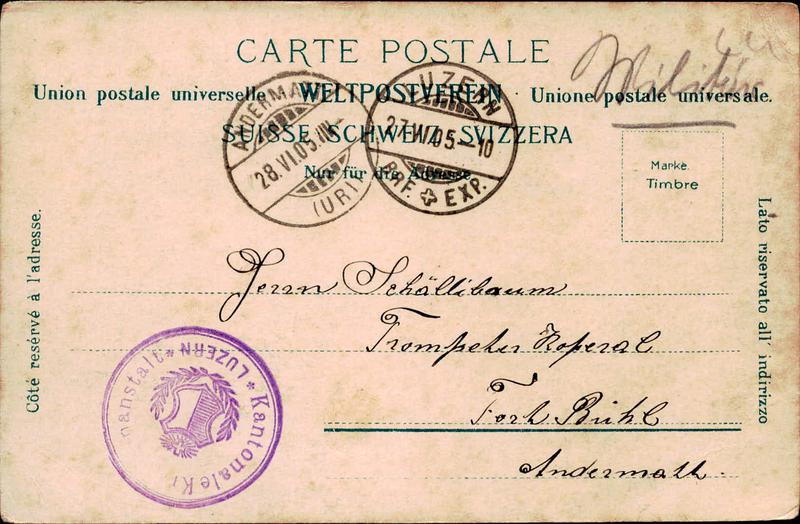 CARTE POSTALE
Militär
Union postale universelle WELTPOSTVEREIN Unione postale universale.
SUISSE SCHWEIZ SVIZZERA
Nur für die Adresse
ANDERMATT
28.VI.05.
(URI)
LUZERN
27.VI.05.–10
BRF. EXP.
Marke.
Timbre
Côté resérvé à l'adresse.
Lato riservato all' indirizzo
Herrn Schällibaum
Trompeter Koperal
Fort Bühl
Andermatt.
* Kantonale Kr anstalt * LUZERN